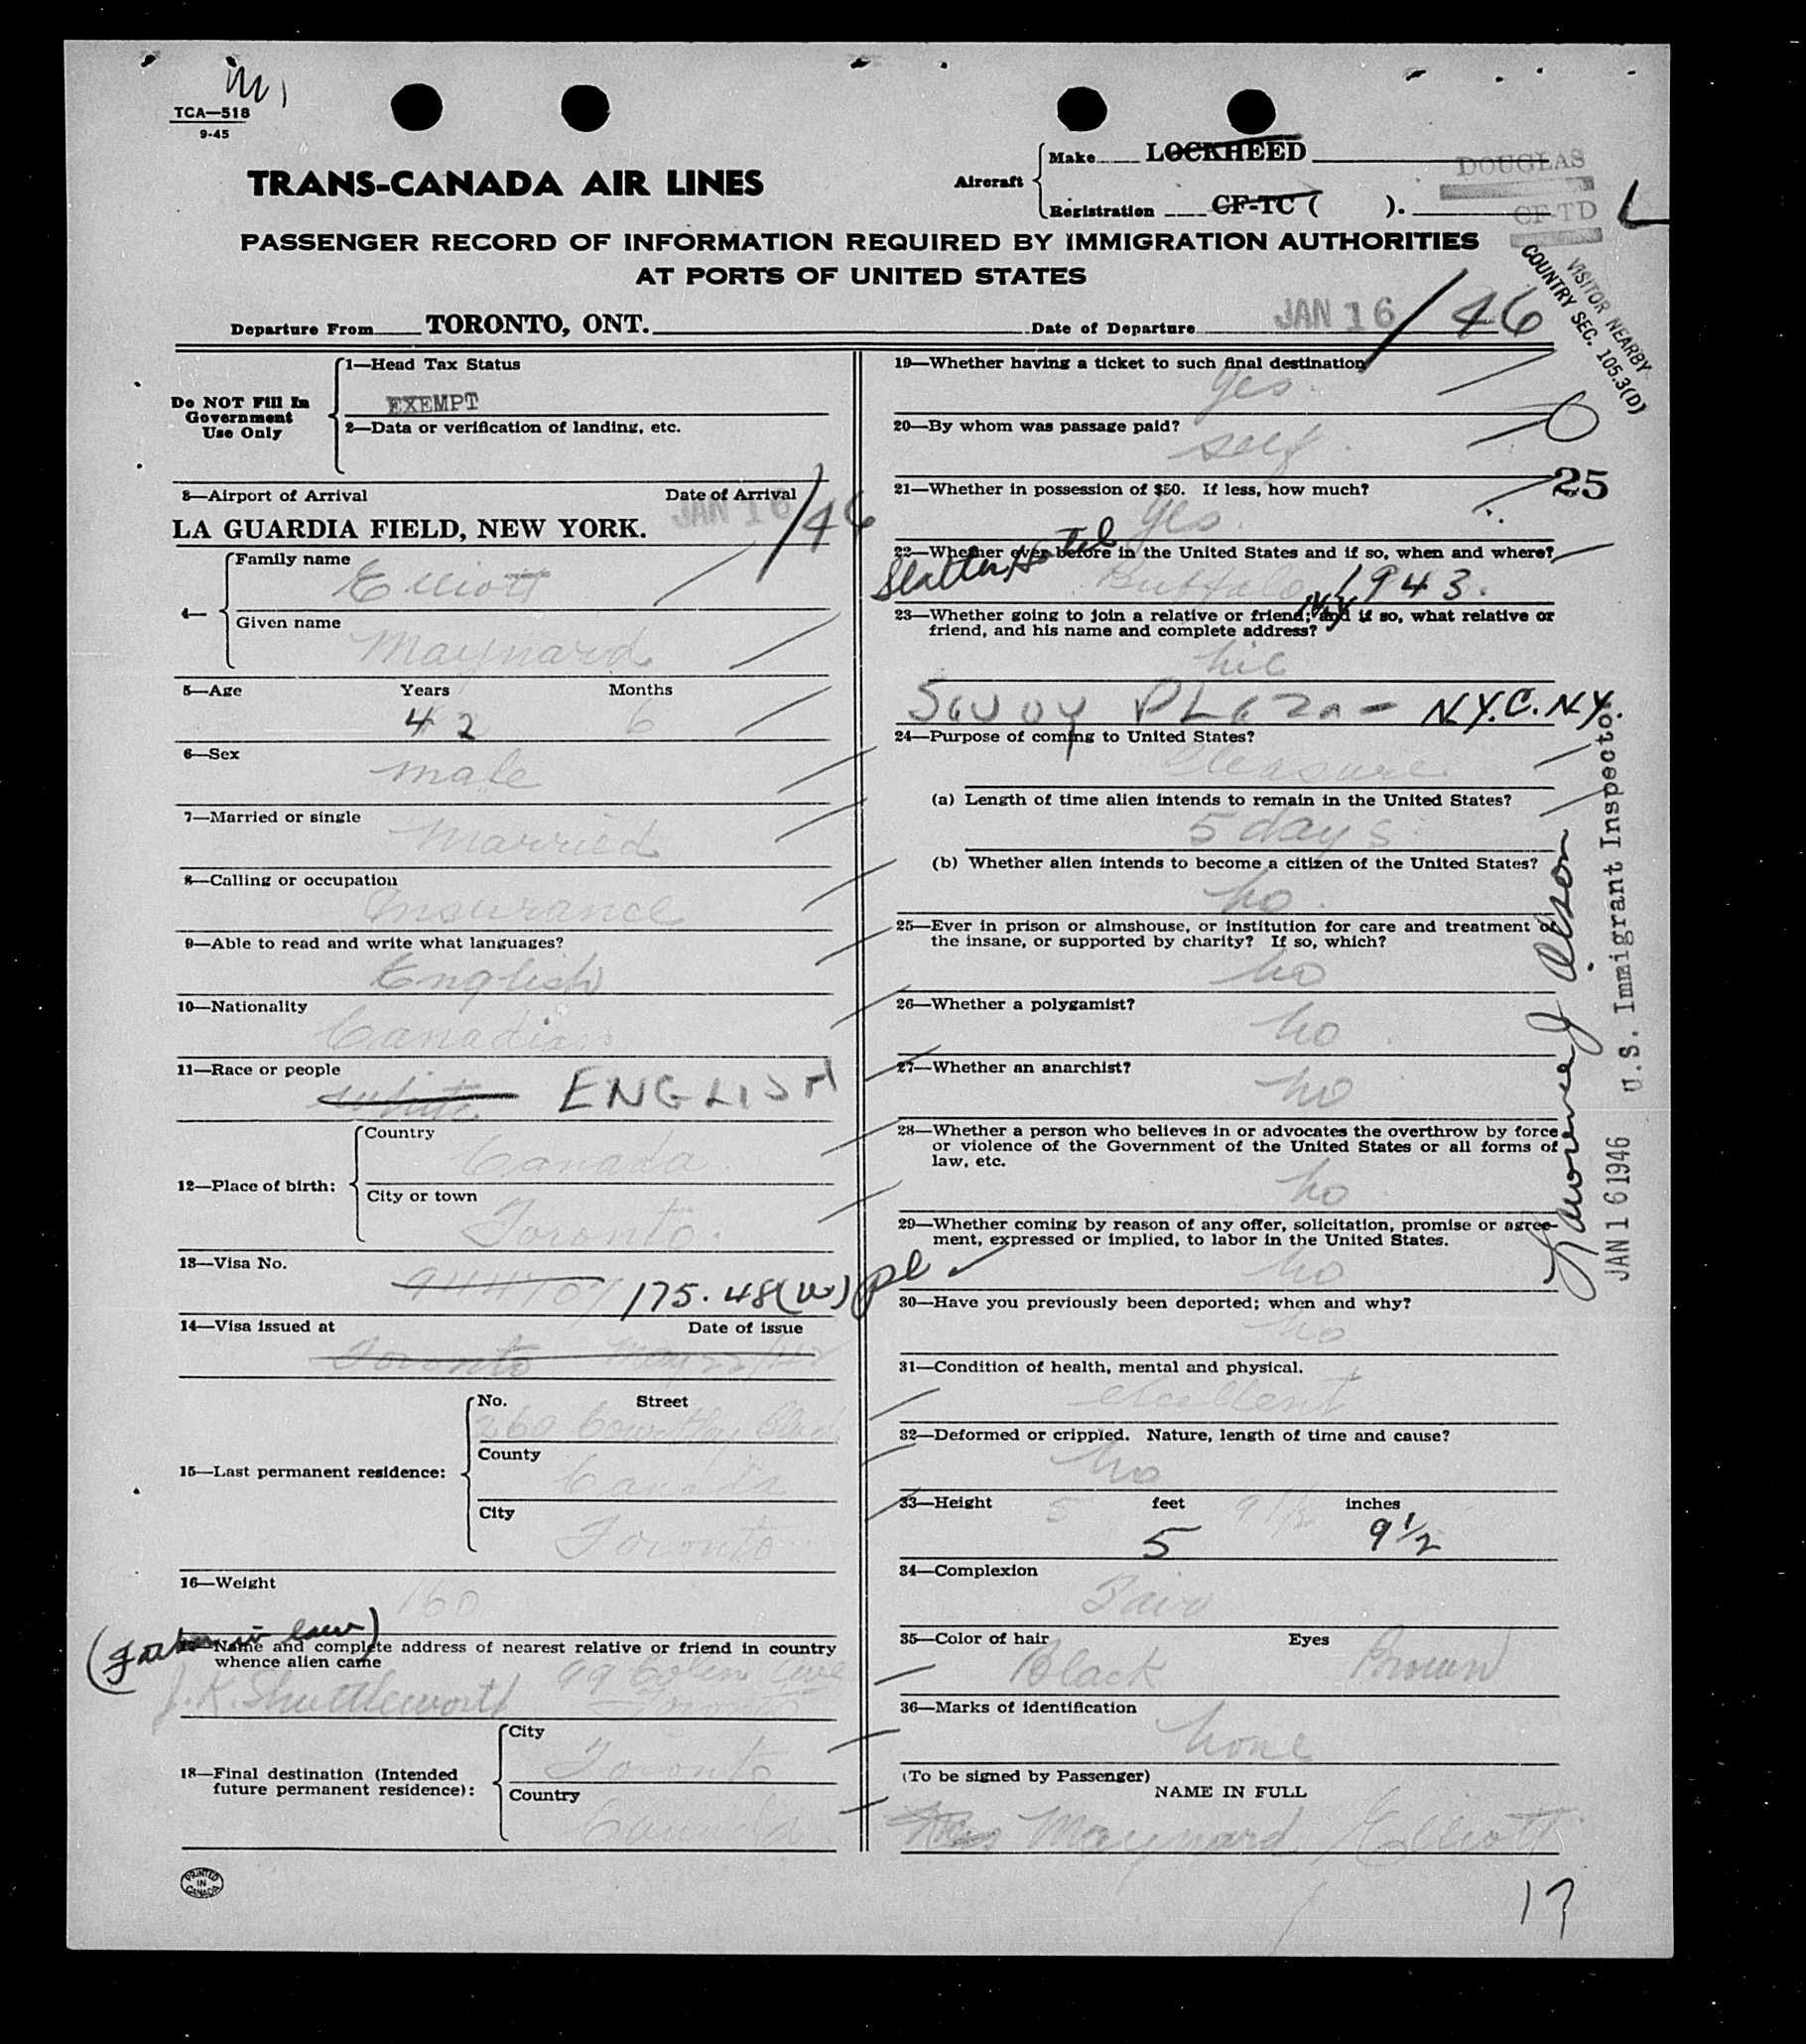 TCA—518
9-45
TRANS-CANADA AIR LINES
Aircraft
Make LOCKHEED
DOUGLAS
Registration CF-TC ( ).
CF-TD
PASSENGER RECORD OF INFORMATION REQUIRED BY IMMIGRATION AUTHORITIES
AT PORTS OF UNITED STATES
VISITOR NEARBY
COUNTRY SEC. 105.3(D)
Departure From TORONTO, ONT. Date of Departure JAN 16 / 46
Do NOT Fill In
Government
Use Only
1—Head Tax Status
EXEMPT
2—Data or verification of landing, etc.
3—Airport of Arrival Date of Arrival
LA GUARDIA FIELD, NEW YORK. JAN 16 / 46
4—
Family name
Elliott
Given name
Maynard
5—Age Years Months
42 6
6—Sex
male
7—Married or single
Married
8—Calling or occupation
Insurance
9—Able to read and write what languages?
English
10—Nationality
Canadian
11—Race or people
white ENGLISH
12—Place of birth:
Country
Canada
City or town
Toronto.
13—Visa No.
175.48(w) pl
14—Visa issued at Date of issue
Toronto
15—Last permanent residence:
No. Street
260 Blvd.
County
Canada
City
Toronto
16—Weight
160
(Father in law)
17—Name and complete address of nearest relative or friend in country
whence alien came
J.K. Shuttleworth 99 Colin Ave
Toronto
18—Final destination (Intended
future permanent residence):
City
Toronto
Country
Canada
19—Whether having a ticket to such final destination
yes.
20—By whom was passage paid?
self.
21—Whether in possession of $50. If less, how much?
25
yes.
22—Whether ever before in the United States and if so, when and where?
Statler Hotel
Buffalo 1943.
23—Whether going to join a relative or friend; and if so, what relative or
friend, and his name and complete address?
nil
Savoy PLaza - N.Y.C. N.Y.
24—Purpose of coming to United States?
Pleasure
(a) Length of time alien intends to remain in the United States?
5 days
(b) Whether alien intends to become a citizen of the United States?
no.
25—Ever in prison or almshouse, or institution for care and treatment of
the insane, or supported by charity? If so, which?
no
26—Whether a polygamist?
no.
27—Whether an anarchist?
no
28—Whether a person who believes in or advocates the overthrow by force
or violence of the Government of the United States or all forms of
law, etc.
no
29—Whether coming by reason of any offer, solicitation, promise or agree-
ment, expressed or implied, to labor in the United States.
no
30—Have you previously been deported; when and why?
no
31—Condition of health, mental and physical.
excellent
32—Deformed or crippled. Nature, length of time and cause?
no
33—Height 5 feet 9 1/2 inches
5 9 1/2
34—Complexion
Fair
35—Color of hair Eyes
Black Brown
36—Marks of identification
none
(To be signed by Passenger)
NAME IN FULL
Maynard Elliott
17
PRINTED
IN
CANADA
U.S. Immigrant Inspector
JAN 16 1946